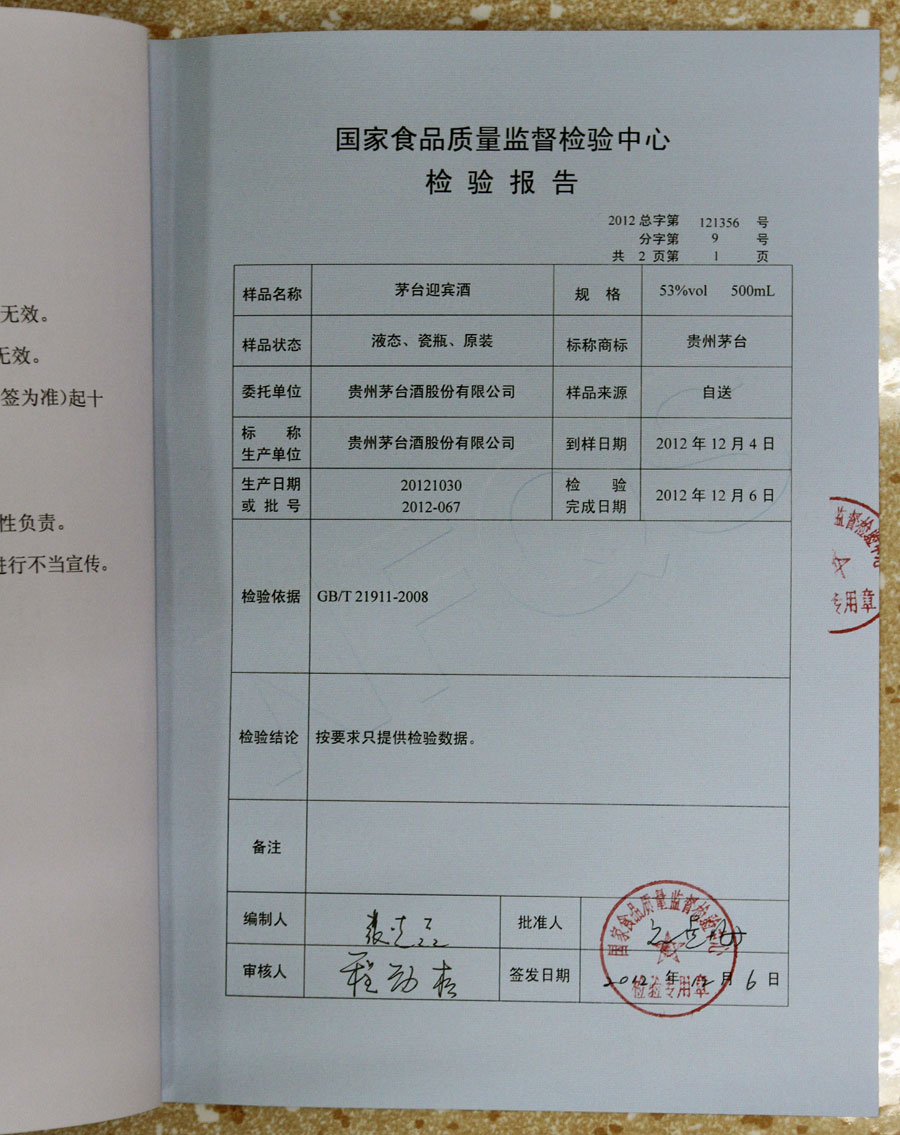 无效。
无效。
签为准)起十
性负责。
进行不当宣传。
国家食品质量监督检验中心
检 验 报 告
2012 总字第 121356 号
分字第 9 号
共 2 页第 1 页
样品名称 茅台迎宾酒 规 格 53%vol 500mL
样品状态 液态、瓷瓶、原装 标称商标 贵州茅台
委托单位 贵州茅台酒股份有限公司 样品来源 自送
标 称
生产单位 贵州茅台酒股份有限公司 到样日期 2012 年 12 月 4 日
生产日期 20121030 检 验
或 批 号 2012-067 完成日期 2012 年 12 月 6 日
检验依据 GB/T 21911-2008
检验结论 按要求只提供检验数据。
备注
编制人 批准人
审核人 签发日期 2012 年 12 月 6 日
国家食品质量监督检验中心
检验专用章
监督检验中心
专用章